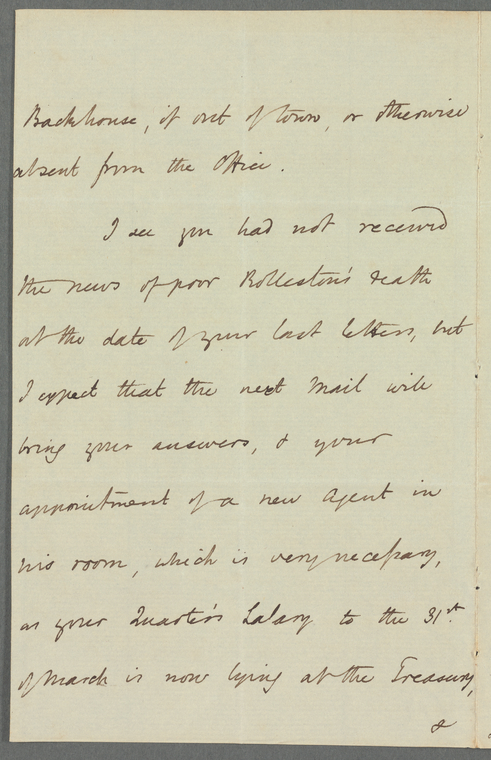 Backhouse, if out of town, or otherwise
absent from the Office.
I see you had not received
the news of poor Rolleston's death
at the date of your last letters, but
I expect that the next Mail will
bring your answers, & your
appointment of a new Agent in
his room, which is very necessary,
as your Quarter's Salary to the 31st.
of March is now lying at the Treasury,
&